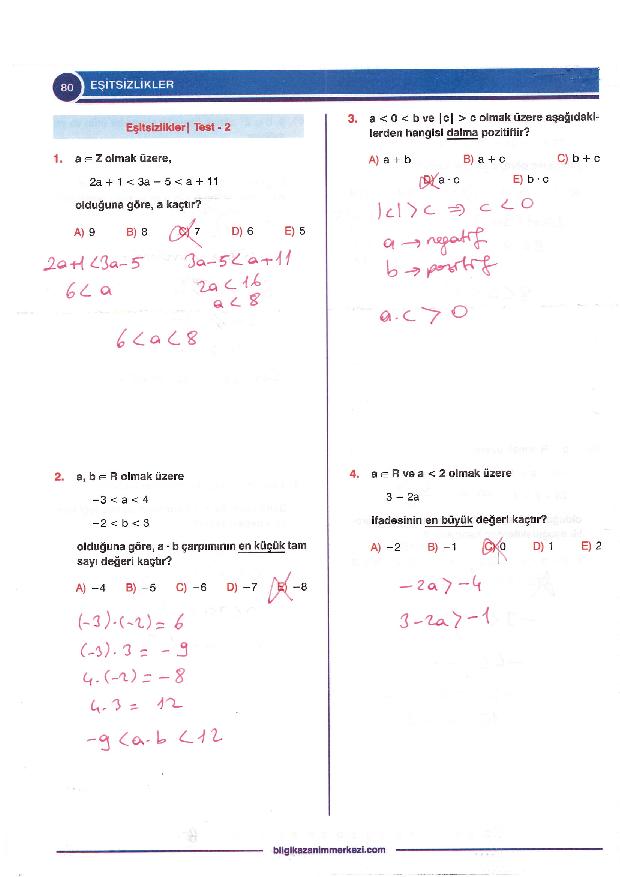 80 EŞİTSİZLİKLER
Eşitsizlikler| Test - 2
1. a ∈ Z olmak üzere,
2a + 1 < 3a − 5 < a + 11
olduğuna göre, a kaçtır?
A) 9 B) 8 C) 7 D) 6 E) 5
2a+1<3a-5 3a-5<a+11
6<a 2a<16
a<8
6<a<8
2. a, b ∈ R olmak üzere
−3 < a < 4
−2 < b < 3
olduğuna göre, a · b çarpımının en küçük tam
sayı değeri kaçtır?
A) −4 B) −5 C) −6 D) −7 E) −8
(-3)·(-2) = 6
(-3)·3 = -9
4·(-2) = -8
4·3 = 12
-9<a·b<12
3. a < 0 < b ve |c| > c olmak üzere aşağıdaki-
lerden hangisi daima pozitiftir?
A) a + b B) a + c C) b + c
D) a · c E) b · c
|c|>c ⇒ c<0
a → negatif
b → pozitif
a.c>0
4. a ∈ R ve a < 2 olmak üzere
3 − 2a
ifadesinin en büyük değeri kaçtır?
A) −2 B) −1 C) 0 D) 1 E) 2
-2a>-4
3-2a>-1
bilgikazanimmerkezi.com